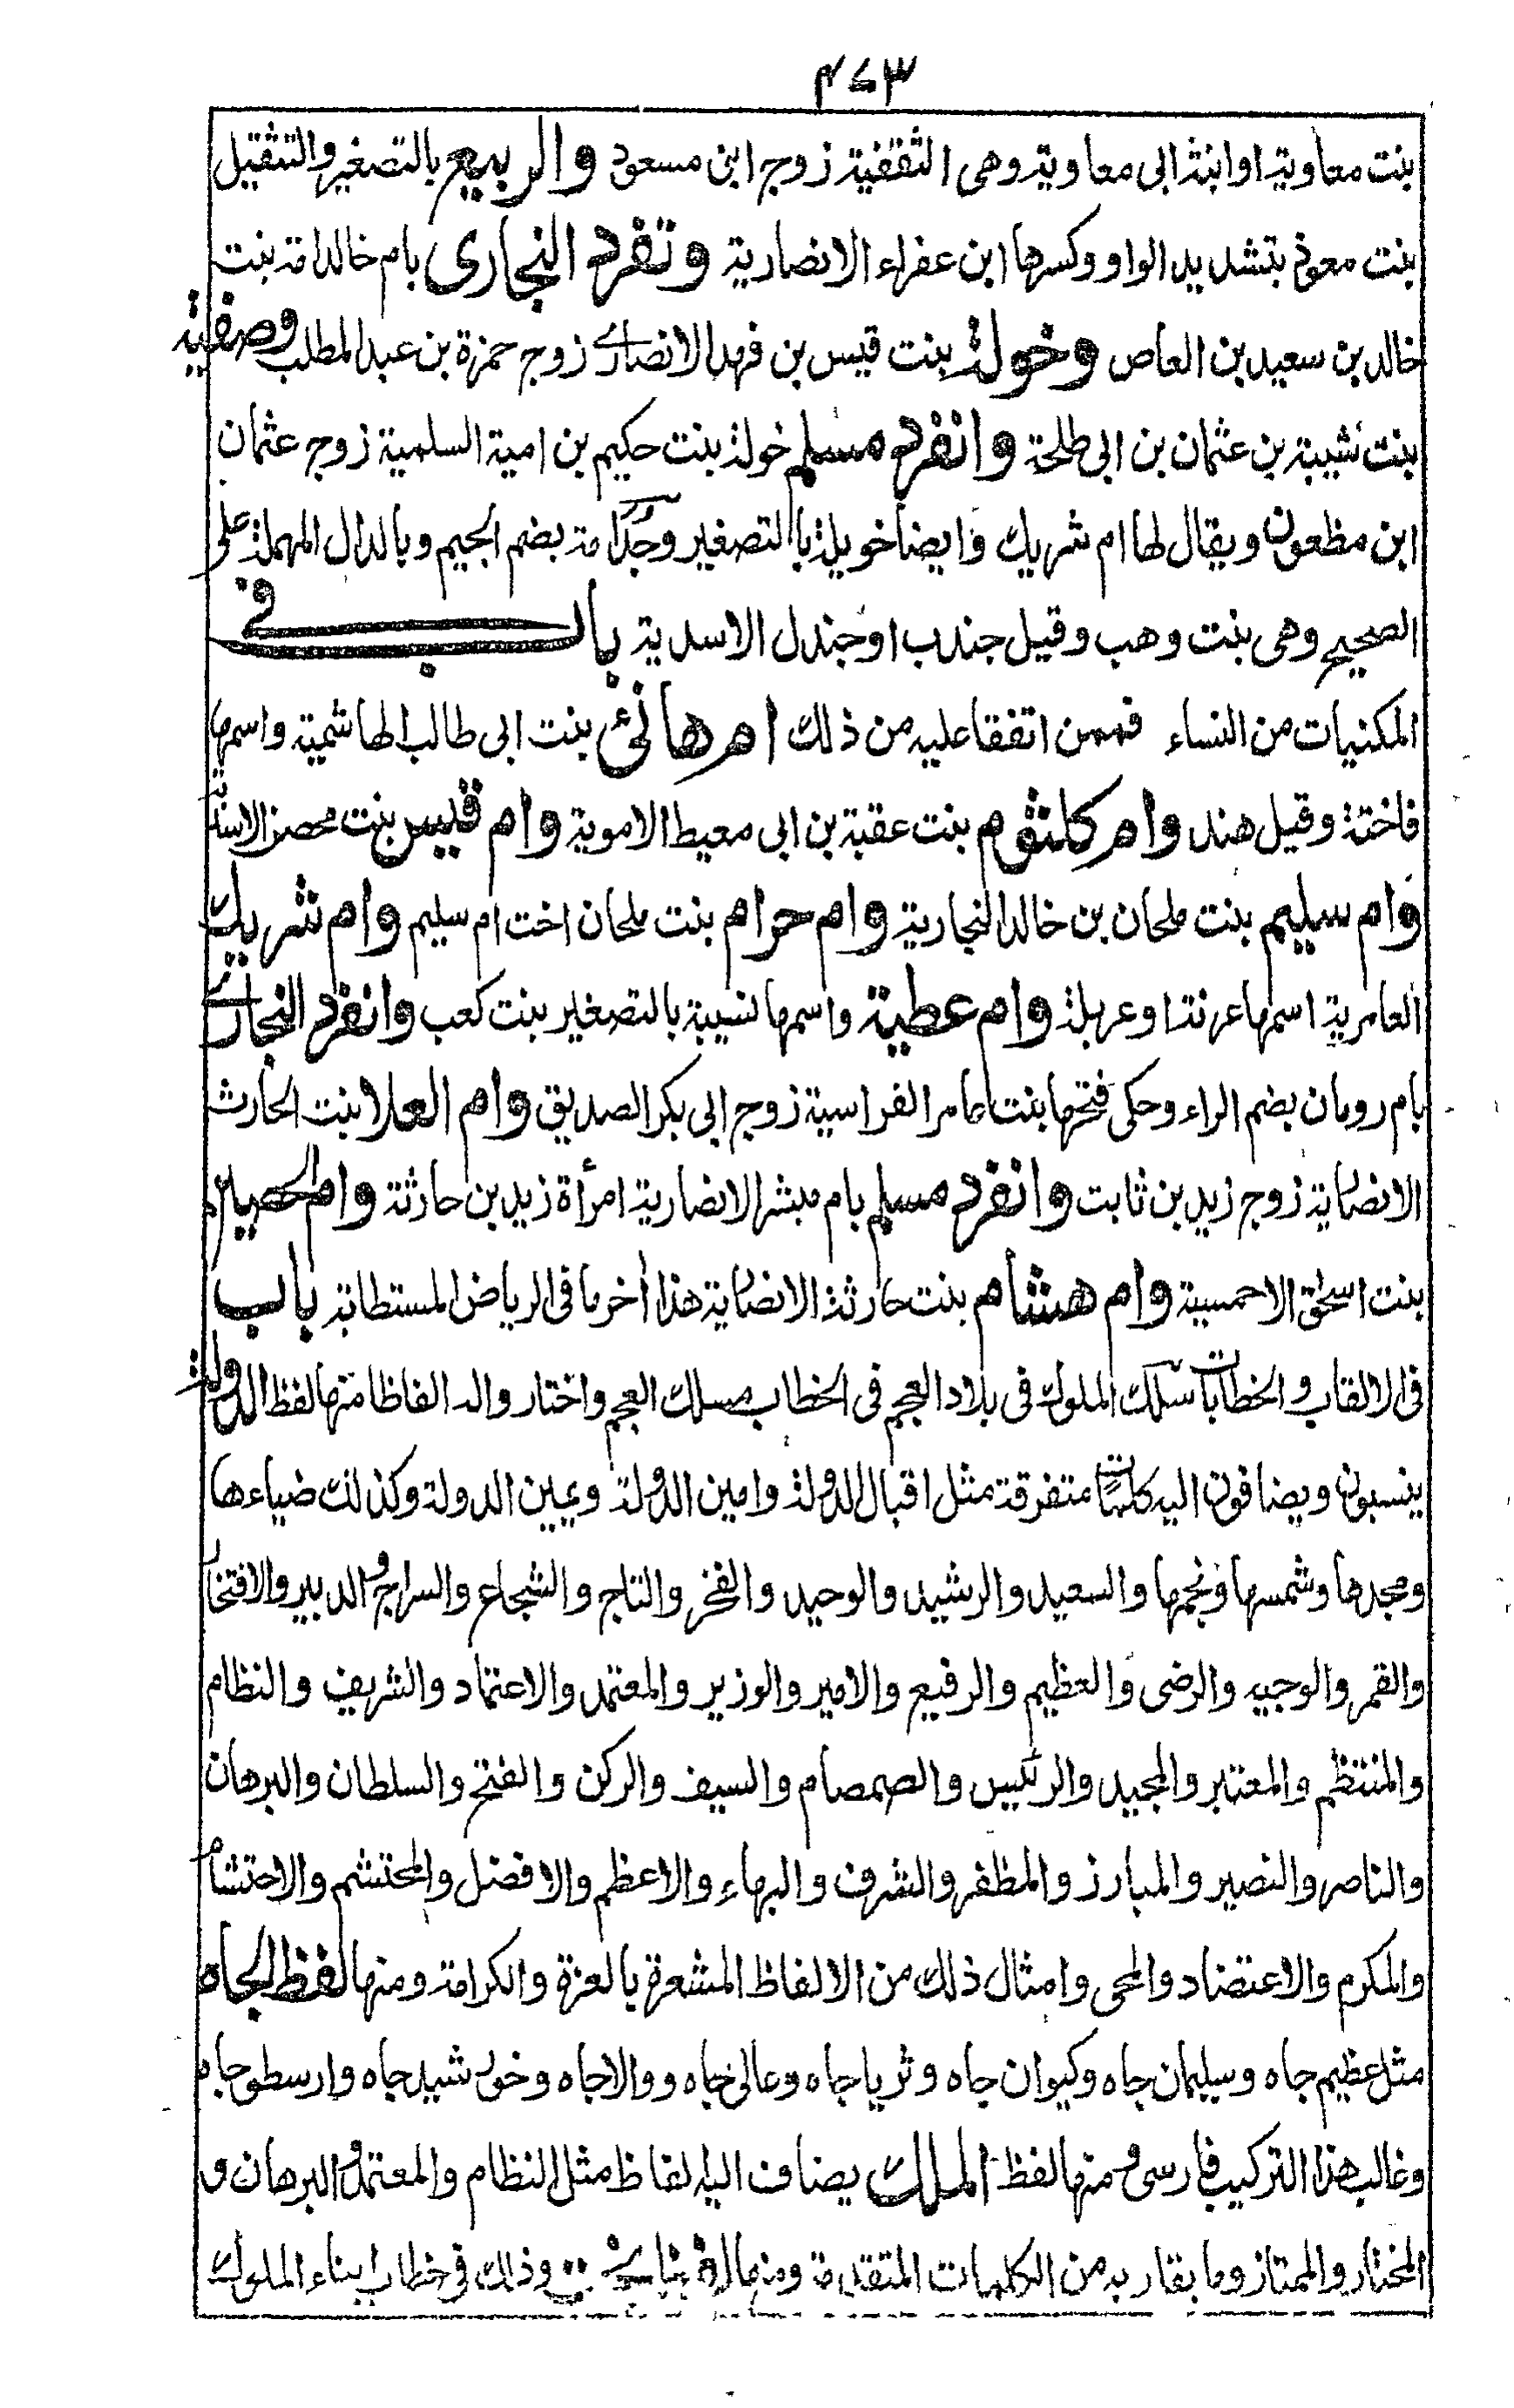 ٤٧٣
بنت معاوية او ابنة ابى معاوية وهى الثقفية زوج ابن مسعود والربيع بالتصغير والتثقيل
بنت معوذ بتشديد الواو وكسرها ابن عفراء الانصارية وتفرد البخارى بام خالد امة بنت
خالد بن سعيد بن العاص وخولة بنت قيس بن فهد الانصارى زوج حمزة بن عبد المطلب وصفية
بنت شيبة بن عثمان بن ابى طلحة وانفرد مسلم خولة بنت حكيم بن امية السلمية زوج عثمان
ابن مظعون ويقال لها ام شريك وايضا خويلة بالتصغير وجدامة بضم الجيم وبالدال المهملة على
الصحيح وهى بنت وهب وقيل جندب او جندل الاسدية باب فى
المكنيات من النساء فممن اتفقا عليه من ذلك ام هانئ بنت ابى طالب الهاشمية واسمها
فاختة وقيل هند وام كلثوم بنت عقبة بن ابى معيط الاموية وام قيس بنت محصن الاسدية
وام سليم بنت ملحان بن خالد النجارية وام حرام بنت ملحان اخت ام سليم وام شريك
العامرية اسمها عزنة او عزيلة وام عطية واسمها نسيبة بالتصغير بنت كعب وانفرد البخارى
بام رومان بضم الراء وحكى فتحها بنت عامر الفراسية زوج ابى بكر الصديق وام العلا بنت الحارث
الانصارية زوج زيد بن ثابت وانفرد مسلم بام مبشر الانصارية امرأة زيد بن حارثة وام الحصين
بنت اسحق الاحمسية وام هشام بنت حارثة الانصارية هذا أخر ما فى الرياض المستطابة باب
فى الالقاب والخطابات سلك الملوك فى بلاد العجم فى الخطاب مسلك العجم واختاروا له الفاظا منها لفظ الدولة
ينسبون ويضافون اليه كلمات متفرقة مثل اقبال الدولة وامين الدولة ويمين الدولة وكذلك ضياءها
ومجدها وشمسها ونجمها والسعيد والرشيد والوحيد والفخر والتاج والشجاع والسراج والدبير والافتخار
والقمر والوجيه والرضى والعظيم والرفيع والامير والوزير والمعتمد والاعتماد والشريف والنظام
والمنتظم والمعتبر والمجيد والرئيس والصمصام والسيف والركن والفتح والسلطان والبرهان
والناصر والنصير والمبارز والمظفر والشرف والبهاء والاعظم والافضل والمحتشم والاحتشام
والمكرم والاعتضاد والمحى وامثال ذلك من الالفاظ المشعرة بالعزة والكرامة ومنها لفظ الجاه
مثل عظيم جاه وسليمان جاه وكيوان جاه وثريا جاه وعالى جاه ووالا جاه وخورشيد جاه وارسطو جاه
وغالب هذا التركيب فارسى ومنها لفظ الملك يضاف اليه لفاظ مثل النظام والمعتمد والبرهان و
المختار والممتاز وما يقاربه من الكلمات المتقدمة ومنها وذلك فى خطاب ابناء الملوك